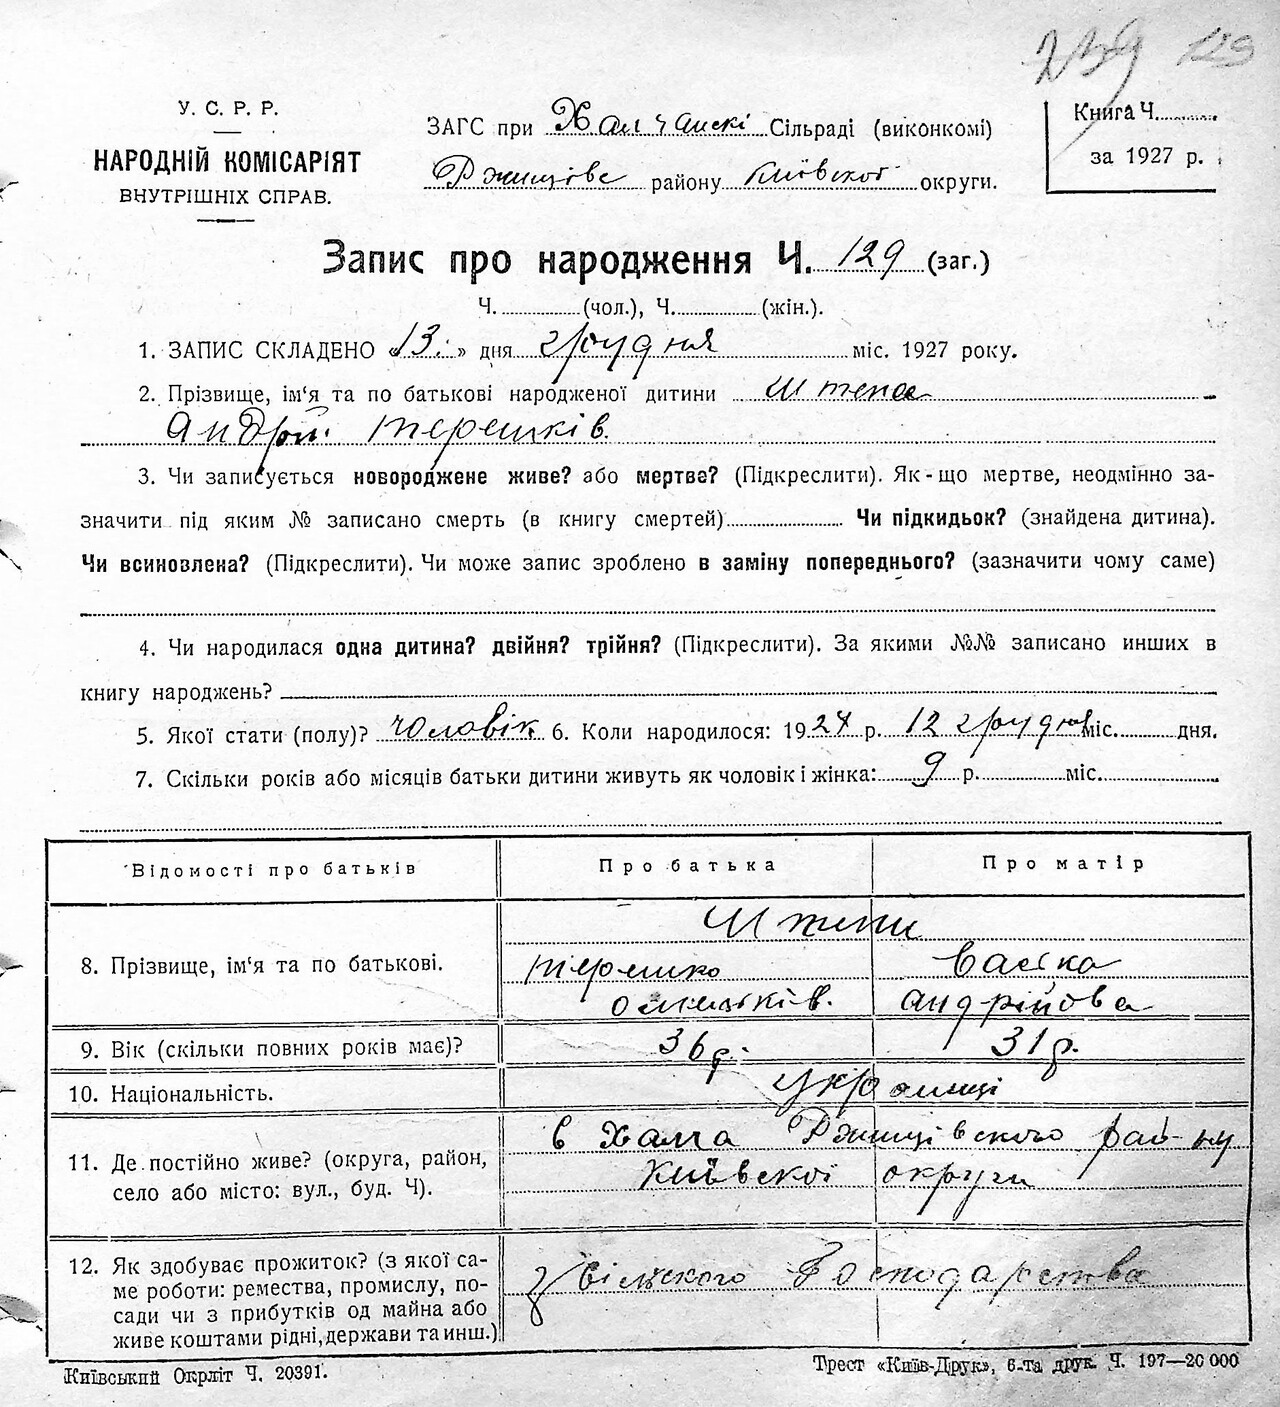 239 129
У. С. Р. Р.
НАРОДНІЙ КОМІСАРІЯТ
ВНУТРІШНІХ СПРАВ.
ЗАГС при Халчанскі Сільраді (виконкомі)
Ржищівс району Київскої округи.
Книга Ч.
за 1927 р.
Запис про народження Ч. 129 (заг.)
Ч. (чол.), Ч. (жін.).
1. ЗАПИС СКЛАДЕНО «13.» дня грудня міс. 1927 року.
2. Прізвище, ім'я та по батькові народженої дитини Штепа
Андрій Терешків.
3. Чи записується новороджене живе? або мертве? (Підкреслити). Як-що мертве, неодмінно за-
значити під яким № записано смерть (в книгу смертей) Чи підкидьок? (знайдена дитина).
Чи всиновлена? (Підкреслити). Чи може запис зроблено в заміну попереднього? (зазначити чому саме)
4. Чи народилася одна дитина? двійня? трійня? (Підкреслити). За якими №№ записано инших в
книгу народжень?
5. Якої стати (полу)? Чоловік. 6. Коли народилося: 1927 р. 12 грудня міс. дня.
7. Скільки років або місяців батьки дитини живуть як чоловік і жінка: 9 р. міс.
Відомості про батьків Про батька Про матір
Штепи
8. Прізвище, ім'я та по батькові. Терешко Васька
Омельків. Андрійова
9. Вік (скільки повних років має)? 36 р. 31 р.
10. Національність. Українці
в Халча Ржищівского рай-ну
11. Де постійно живе? (округа, район,
село або місто: вул., буд. Ч). Київскої округи
12. Як здобуває прожиток? (з якої са-
ме роботи: ремества, промислу, по-
сади чи з прибутків од майна або
живе коштами рідні, держави та инш.)
З сільского Господарства
Київський Окрліт Ч. 20391.
Трест «Київ-Друк», 6-та друк. Ч. 197—20 000